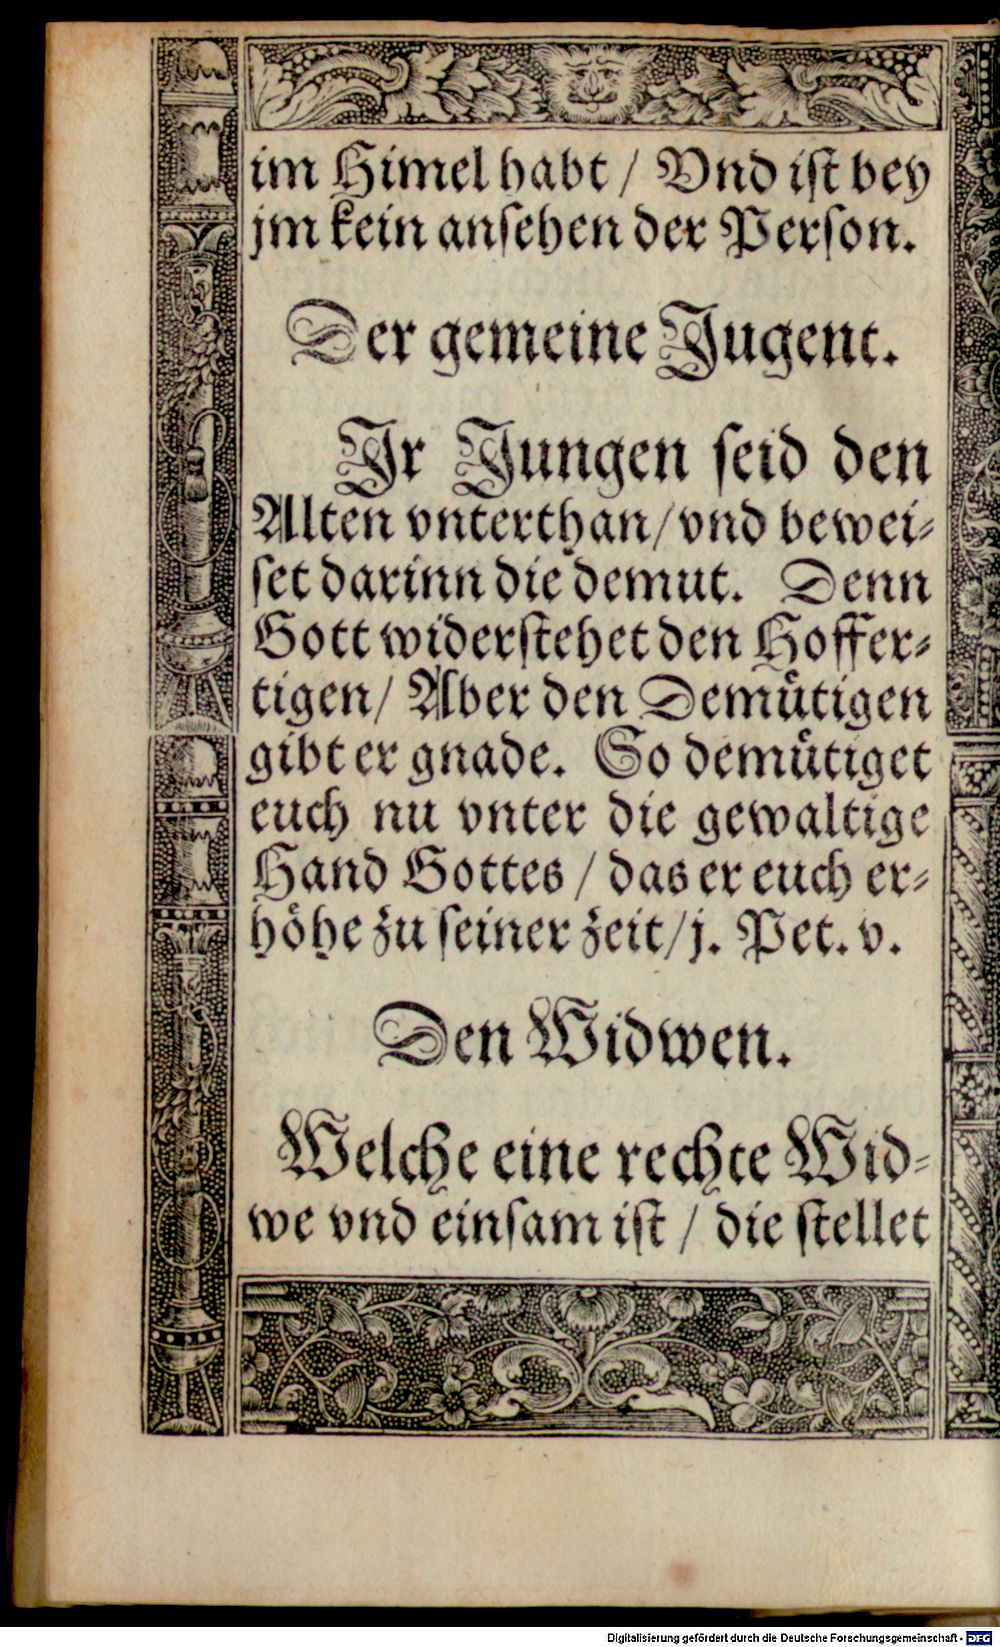 im Himel habt / Vnd ist bey
jm kein ansehen der Person.
Der gemeine Jugent.
Jr Jungen seid den
Alten vnterthan / vnd bewei⸗
set darinn die demut. Denn
Gott widerstehet den Hoffer⸗
tigen / Aber den Demuͤtigen
gibt er gnade. So demuͤtiget
euch nu vnter die gewaltige
Hand Gottes / das er euch er⸗
hoͤhe zu seiner zeit / j. Pet. v.
Den Widwen.
Welche eine rechte Wid⸗
we vnd einsam ist / die stellet
Digitalisierung gefördert durch die Deutsche Forschungsgemeinschaft - DFG